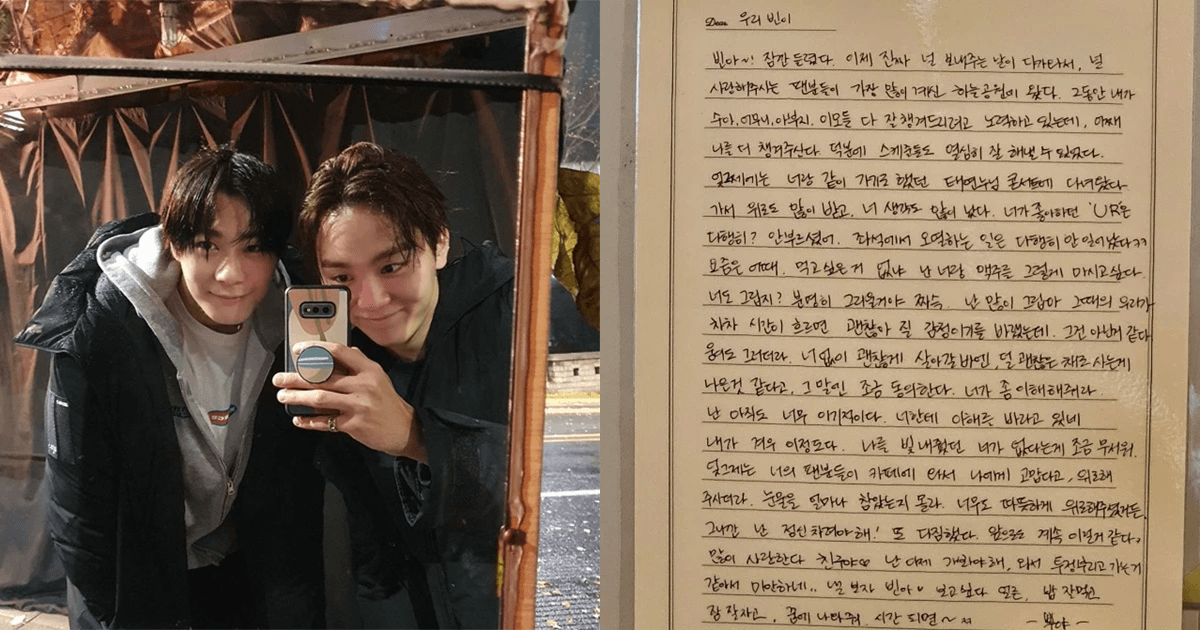 Dear. 우리 빈이
빈아~! 잠깐 들렸다. 이제 진짜 널 보내주는 날이 다가와서, 널
사랑해주시는 팬분들이 가장 많이 계신 하늘공원이 왔다. 그동안 내가
수아, 어머니, 아버지, 이모들 다 잘 챙겨드리려고 노력하고 있는데, 어째
나를 더 챙겨주신다 덕분에 스케줄들도 열심히 잘 해낼 수 있었다.
엊그제에는 너랑 같이 가기로 했던 태연누님 콘서트에 다녀왔다
가서 위로도 많이 받고, 너 생각도 많이 났다. 너가 좋아하던 'UR'은
다행히? 안부르셨어. 좌석에서 오열하는 일은 다행히 안 일어났다ㅋㅋ
요즘은 어때. 먹고 싶은 거 없냐 난 너랑 맥주를 그렇게 마시고 싶다.
너도 그렇지? 분명히 그리울거야 짜슥. 난 많이 그립다 그때의 우리가
차차 시간이 흐르면 괜찮아 질 감정이기를 바랬는데. 그건 아닌거 같다
움어도 그러더라. 너 없이 괜찮게 살아갈 바엔, 덜 괜찮은 채로 사는게
나은것 같다고, 그 말엔 조금 동의한다. 너가 좀 이해해줘라
난 아직도 너무 이기적이다. 너한테 이해를 바라고 있네
내가 겨우 이정도다. 나를 빛내줬던 너가 없다는게 조금 무서워.
엊그제는 너의 팬분들이 카페에 와서 나에게 고맙다고, 위로해
주시더라. 눈물을 얼마나 참았는지 몰라. 너무도 따뜻하게 위로해주셨거든.
그니깐 난 정신차려야해! 또 다짐했다. 앞으로도 계속 이럴거 같다,
많이 사랑한다 친구야♡ 난 이제 가봐야해, 와서 투정부리고 가는거
같아서 미안하네.. 낼 보자 빈아♡ 보고싶다 얼른, 밥 잘먹고
잠 잘자고, 꿈에 나타나줘. 시간 되면~
- 뿌가 -